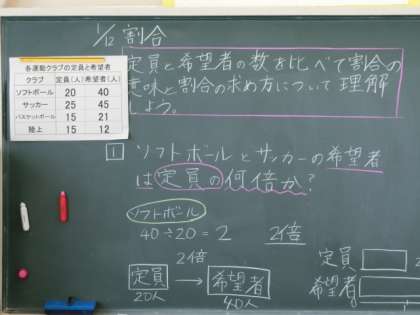 1/12 割合
定員と希望者の数を比べて割合の
意味と割合の求め方について理解
しよう。
各運動クラブの定員と希望者
クラブ 定員(人) 希望者(人)
ソフトボール 20 40
サッカー 25 45
バスケットボール 15 21
陸上 15 12
1 ソフトボールとサッカーの希望者
は定員の何倍か?
ソフトボール
40÷20=2 2倍
2倍
定員 → 希望者
20人 40人
定員
希望者
0